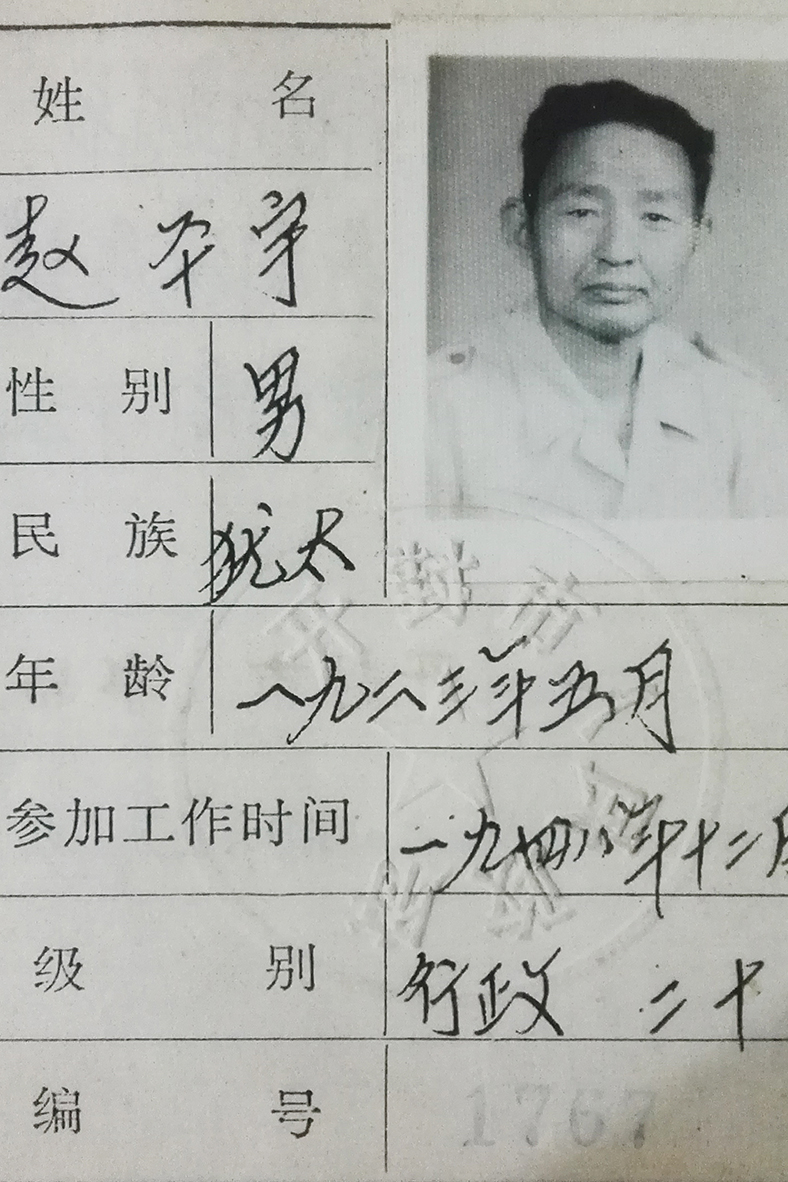 姓名
赵平宇
性别 男
民族 犹太
年龄 一九二三年五月
参加工作时间 一九四八年十二月
级别 行政 二十
编号 1767
开封市